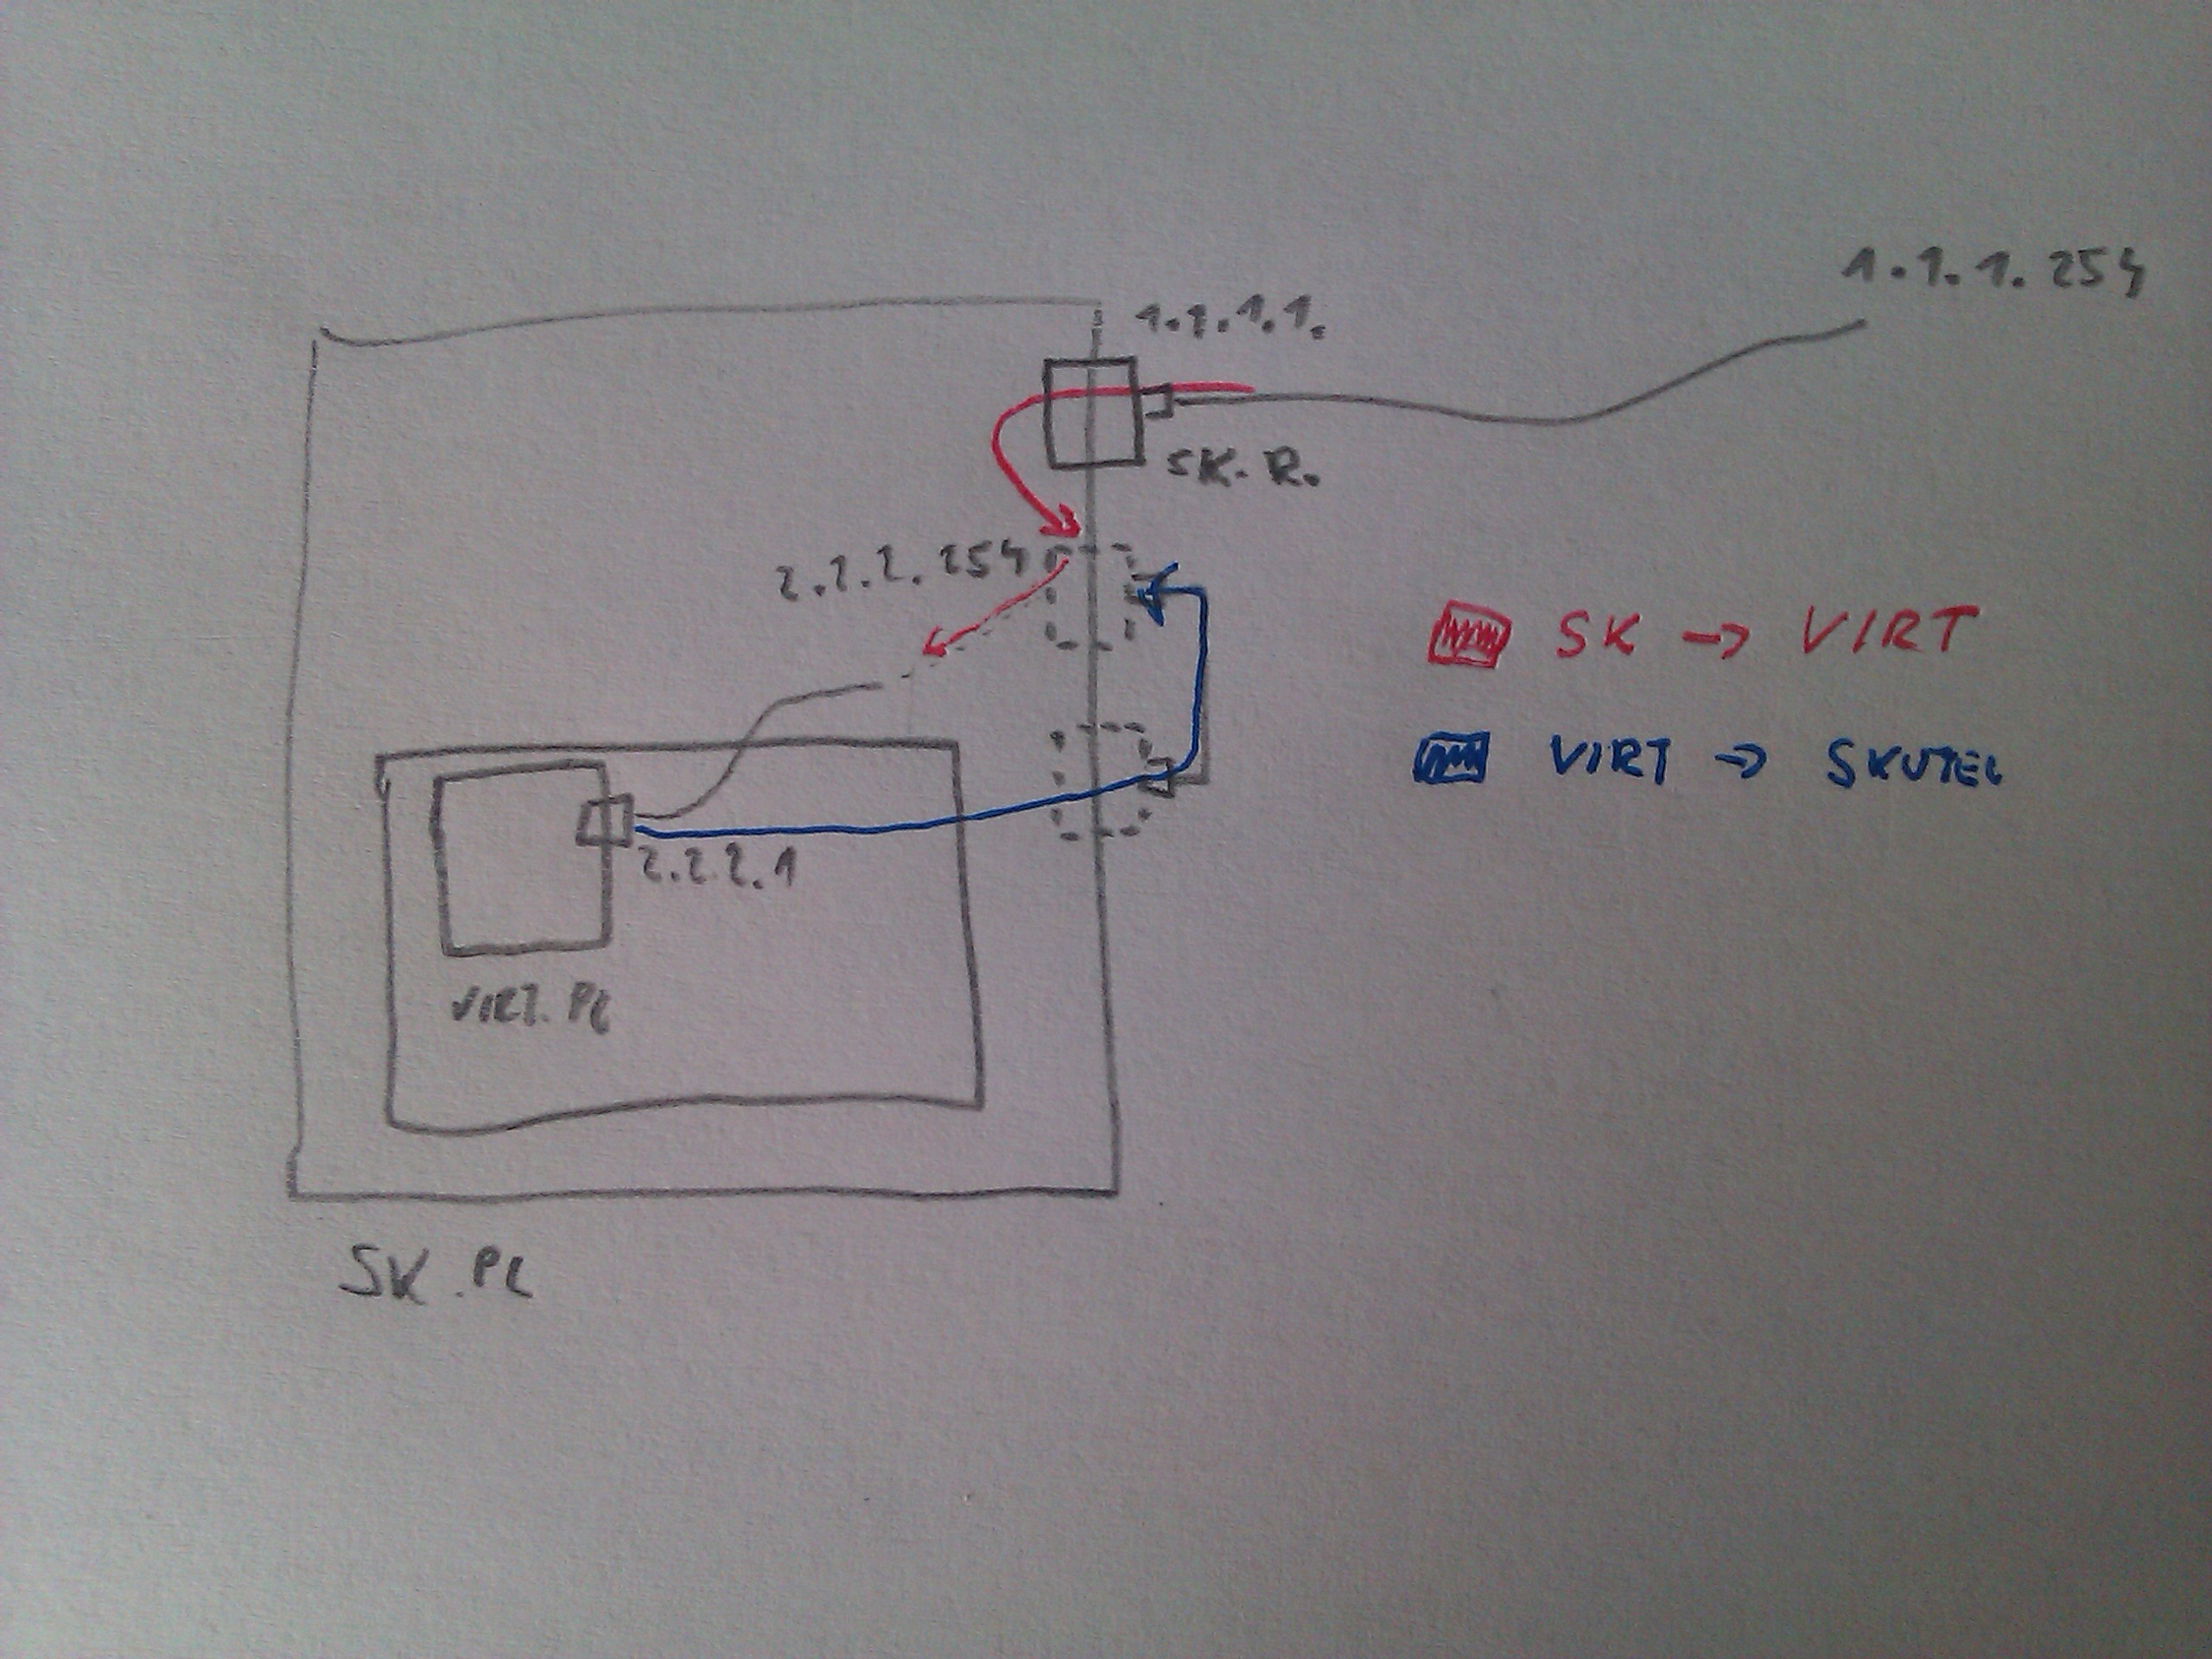 1.1.1.254
1.1.1.1.
SK. R.
2.2.2.254
SK → VIRT
VIRT → SKUTEČ
2.2.2.1
VIRT. PC
SK. PC